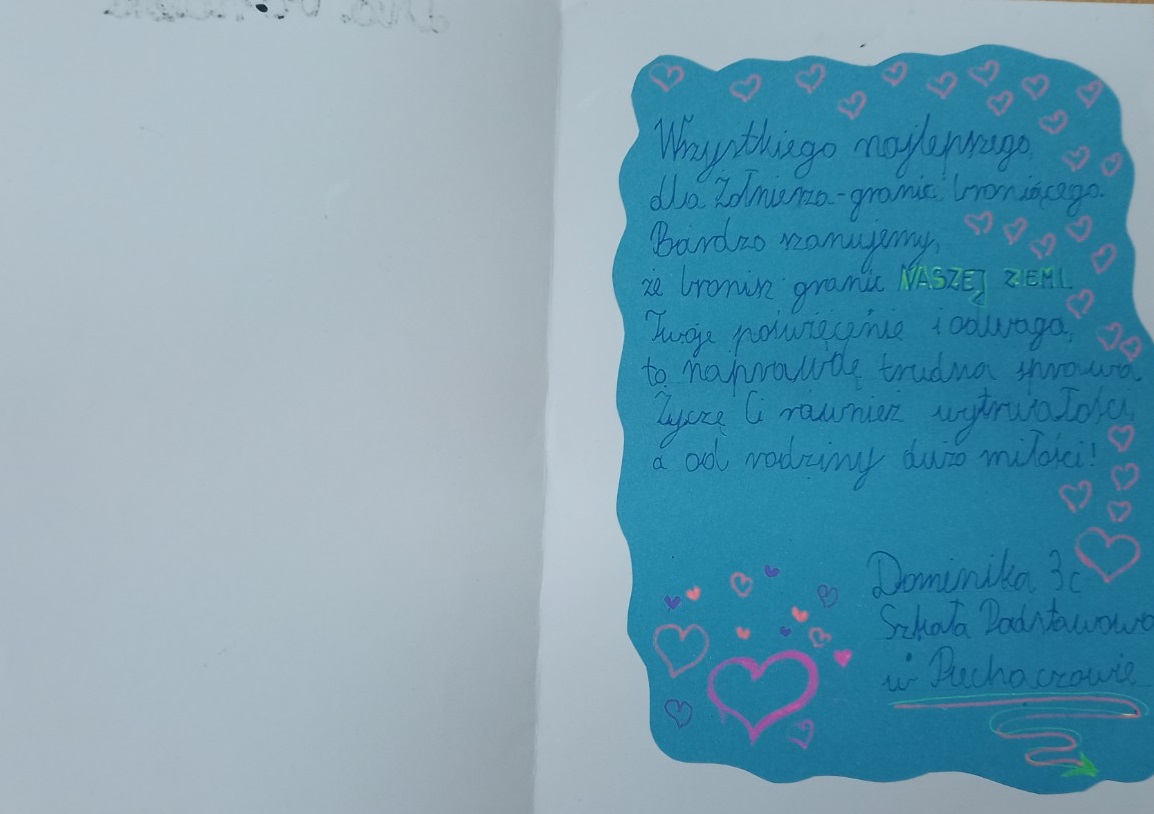 Wszystkiego najlepszego,
dla Żołnierza-granic broniącego.
Bardzo szanujemy,
że bronisz granic NASZEJ ZIEMI.
Twoje poświęcenie i odwaga,
to naprawdę trudna sprawa.
Życzę Ci również wytrwałości,
a od rodziny dużo miłości!
Dominika 3c
Szkoła Podstawowa
w Piechaczowie